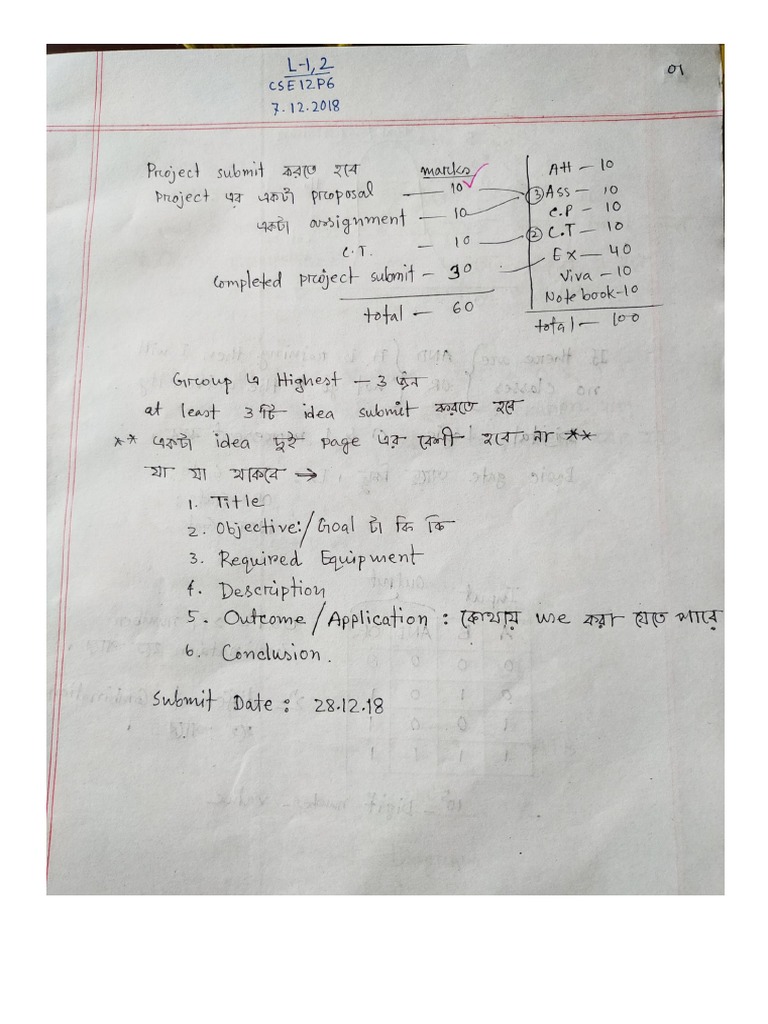 L-1,2
CSE12P6
7.12.2018
01
Project submit করতে হবে
marks
Project এর একটা proposal — 10
একটা assignment — 10
C.T. - 10
Completed project submit - 30
total — 60
Att - 10
③ Ass - 10
C.P - 10
② C.T - 10
Ex — 40
Viva - 10
Notebook-10
total — 100
Group এ Highest - 3 জন
at least 3টি idea submit করতে হবে
** একটা idea দুই page এর বেশী হবে না **
যা যা থাকবে →
1. Title
2. Objective:/Goal টা কি কি
3. Required Equipment
4. Description
5. Outcome/Application : কোথায় use করা যেতে পারে
6. Conclusion.
Submit Date : 28.12.18